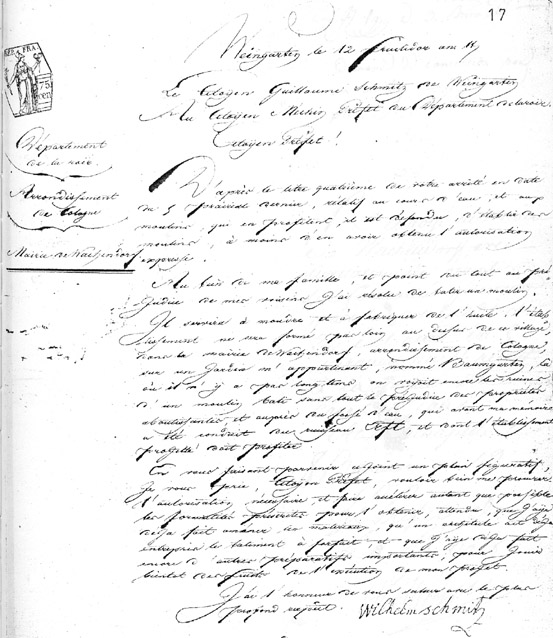 17
REP. FRA.
75
cen
Weingarten le 12 fructidor an 11
Le Citoyen Guillaume Schmitz de Weingarten
Au Citoyen Mechin Préfet du Département de la roer
Citoyen Préfet!
Département
de la roer.
Arrondissement
de Cologne
Mairie de Wachendorf
D'après le titre quatrième de votre arrêté en date
du 5 prairial dernier, relatif au cours d'eau, et aux
moulins, qui en profitent, il est defendu, d'établir des
moulins, à moins d'en avoir obtenu l'autorisation
expresse.
Au bien de ma famille, et point du tout au pré-
judice de mes voisins J'ai résolu de batir un moulin.
Il servira à moudre et à fabriquer de l'huile. l'etab-
lissement ne sera formé pas loin au dessus de ce village
dans la mairie de Wachendorf, arrondissement de Cologne,
sur un Jardin m'appartenant, nommé Baumgarten, là
où il n'y a pas long-tems on voyait encore les ruines
d'un moulin bati sans tout le préjudice des propriétés
aboutissantes et auprès du fossé d'eau, qui avant ma memoire
a été conduit du ruisseau Erft, et dont l'établissement
projetté doit profiter
En vous faisant parvenir ci-joint un plan figuratif,
Je vous prie, Citoyen Préfet, vouloir bien me procurer
l'autorisation nécessaire et faire accélérer autant que possible
les formalités préscrites pour l'obtenir, attendu, que J'aye
deja fait amener les materiaux, qu'un architecte aie deja
entrepris le batiment à forfait, et que J'aye deja fait
encore d'autres préparatifs importants, pour Jouir
bientot des fruits de l'exécution de mon projet.
J'ai l'honneur de vous saluer avec le plus
profond respect.
Wilhelm schmitz